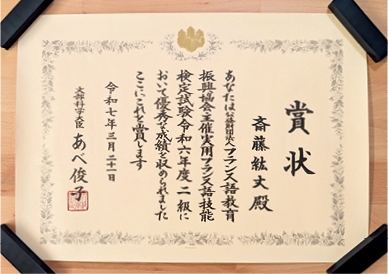 賞状
斎藤紘丈殿
あなたは公益財団法人フランス語教育
振興協会主催実用フランス語技能
検定試験令和六年度二級に
おいて優秀な成績を収められました
ここにこれを賞します
令和七年三月二十一日
文部科学大臣 あべ俊子